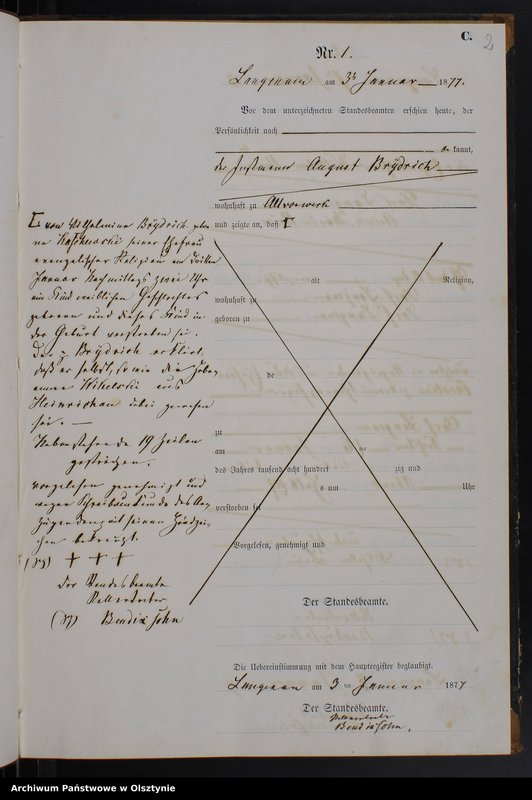 C.
2
Nr. 1.
Langenau am 3ten Januar 1877.
Vor dem unterzeichneten Standesbeamten erschien heute, der
Persönlichkeit nach
be kannt,
der Instmann August Brÿdrich
wohnhaft zu Altvorwerk
und zeigte an, daß [
[ von Wilhelmine Brÿdrich gebo
ne seiner Ehefrau
evangelischer Religion am dritten
Januar Nachmittags zwei Uhr
ein Kind weiblichen Geschlechtes
geboren und dieses Kind in
der Geburt verstorben sei.
Der p. Brÿdrich erklärt,
daß er selbst, sowie die Hebe-
amme aus
Heinrichau dabei gewesen
sei. —
Nebenstehende 19 Zeilen
gestrichen.
vorgelesen genehmigt und
wegen Schreibunkunde des An-
zeigenden mit seinem Handzei-
chen bekreuzt.
+ + +
Der Standesbeamte
Stellvertreter
John
alt
Religion,
wohnhaft zu
geboren zu
de
zu
am ten
des Jahres tausend acht hundert zig und
s um Uhr
verstorben sei
Vorgelesen, genehmigt und
Der Standesbeamte.
Die Uebereinstimmung mit dem Hauptregister beglaubigt.
Langenau am 3 ten Januar 1877
Der Standesbeamte.
Stellvertreter
John.
Archiwum Państwowe w Olsztynie